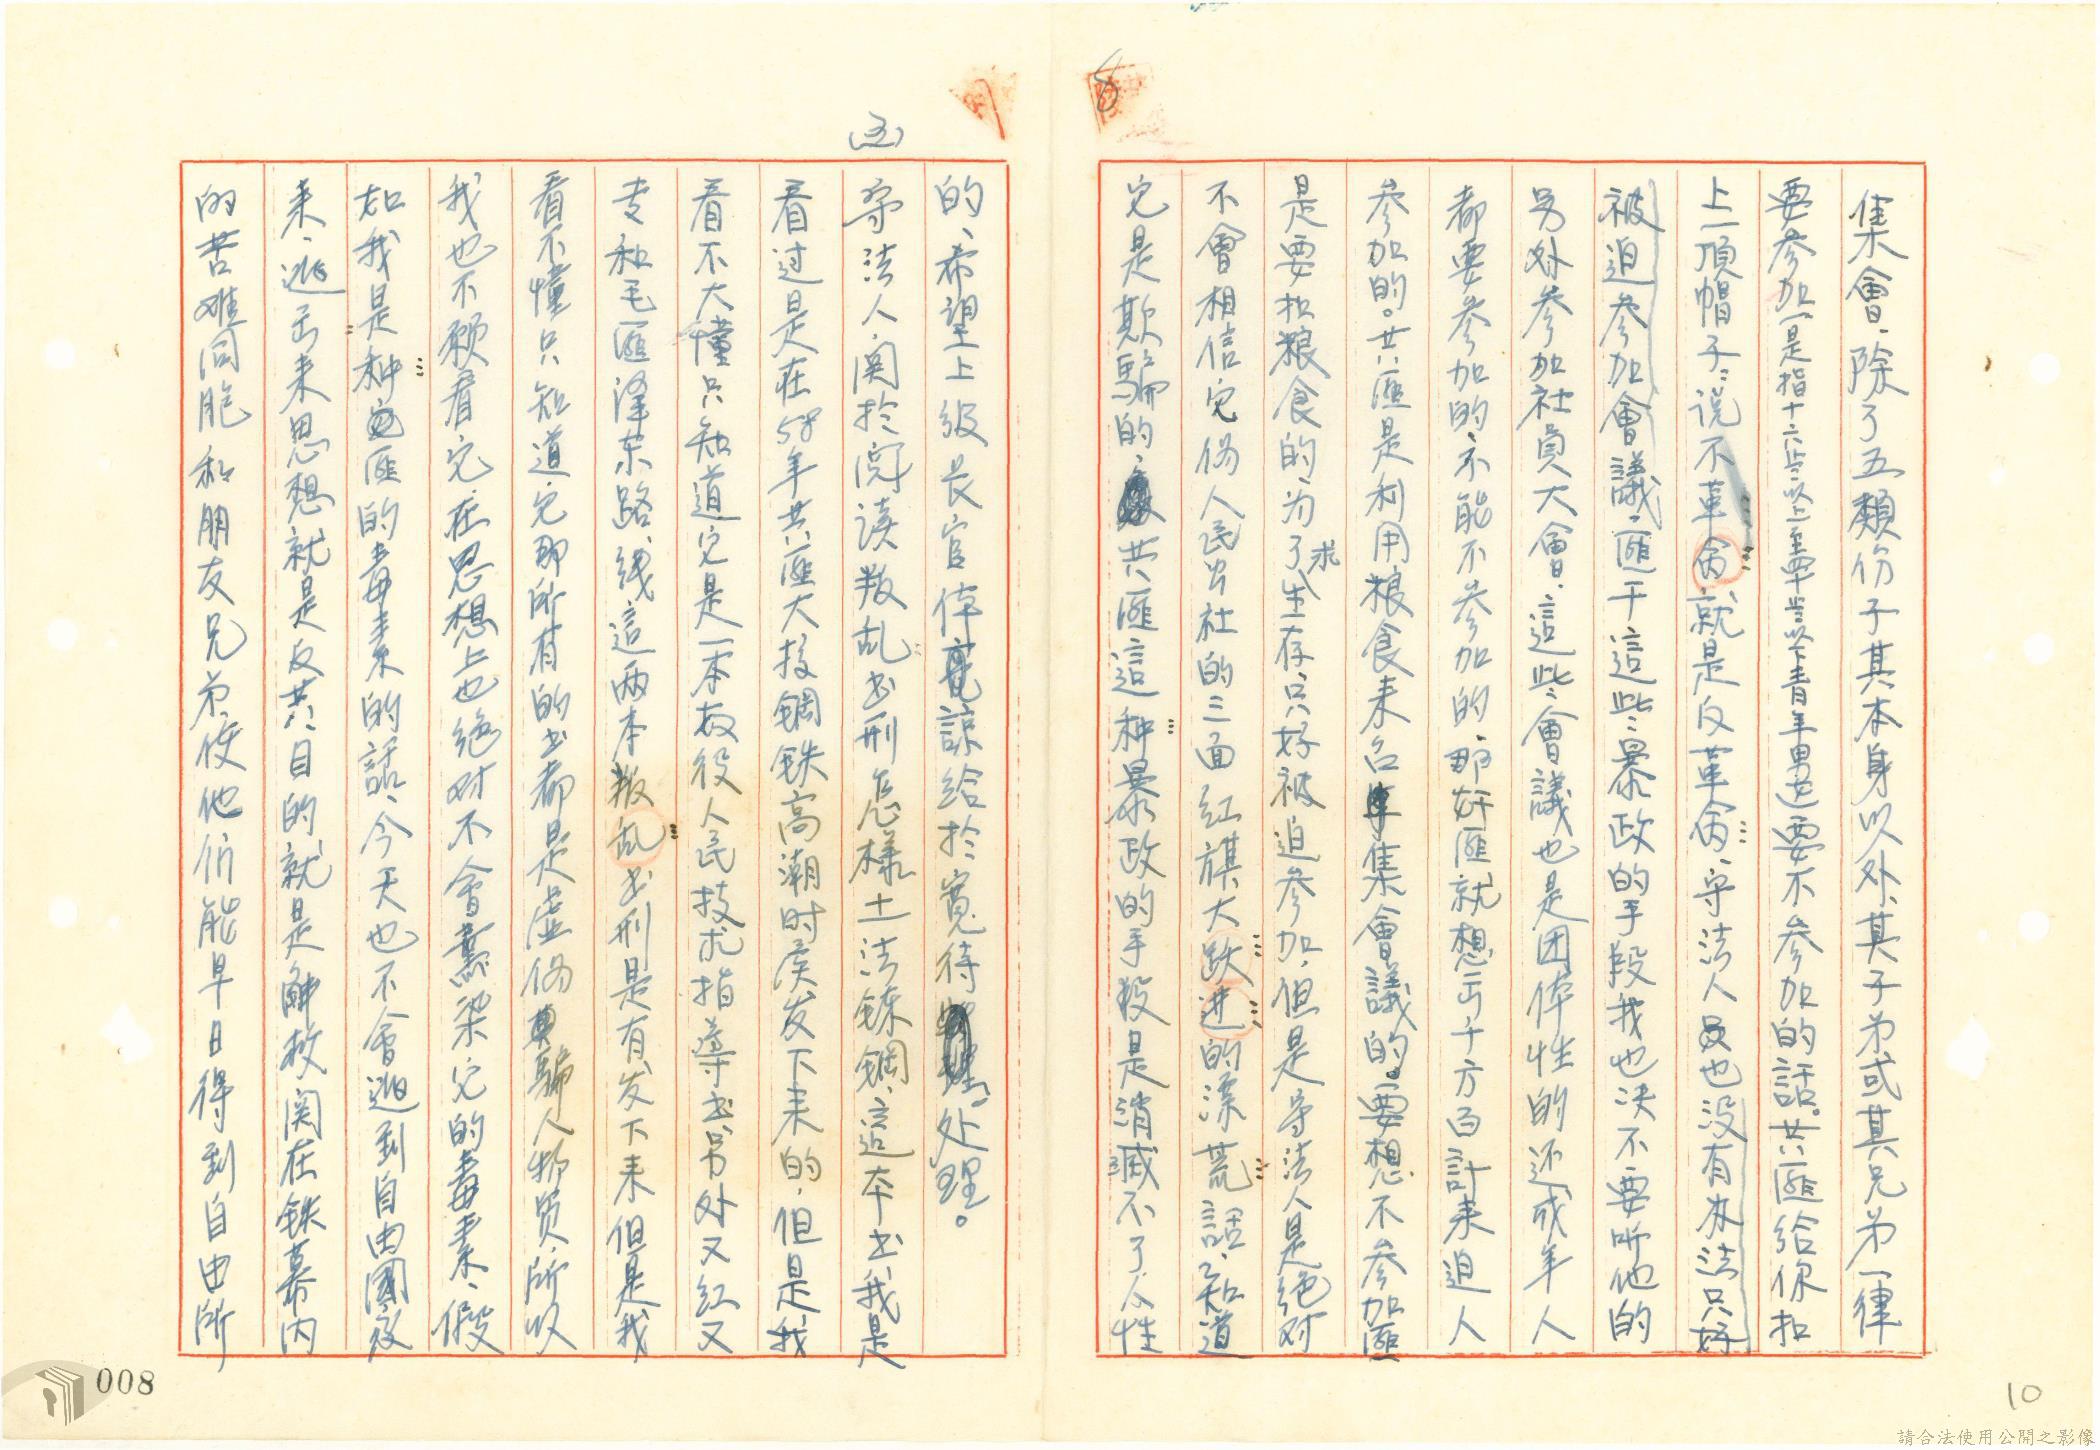 8
集會、除了五類份子其本身以外、其子弟或其兄弟一律
要参加(是指十六岁以上至卅岁以下青年男)要不参加的話。共匪給你扣
上一頂帽子:説不革命就是反革命、守法人員也没有办法只好
被迫参加會議、匪干這些暴政的手段我也决不要听他的
另外参加社員大會、這些會議也是团体性的还成年人
都要参加的、不能不参加的、那奸匪就想千方百計来迫人
参加的。共匪是利用粮食来召集會議的。要想不参加匪
是要扣粮食的、为了求生存、只好被迫参加、但是守法人是絶对
不會相信它伪人民公社的三面红旗大跃进的漂荒話、知道
它是欺騙的、共匪這种暴政的手段是消滅不了人性
的、希望上级長官体諒給於寬待处理。
(五)
守法人、関於閲读叛乱書刊怎樣土法鍊鋼、這本书我是
看过是在58年共匪大搞鋼铁高潮时候发下来的、但是我
看不大懂只知道它是一本奴役人民技术指導书另外又红又
专和毛匪泽东路线這两本叛乱书刊是有发下来但是我
看不懂只知道它那所有的书都是虚伪騙人物質、所以
我也不願看它、在思想上也绝对不會熏染它的毒素、假
如我是种匪的毒素的話、今天也不會逃到自由國家
来、逃出来思想就是反共、目的就是解救関在铁幕内
的苦难同胞和朋友兄弟、使他们能早日得到自由所
008
10
請合法使用公開之影像